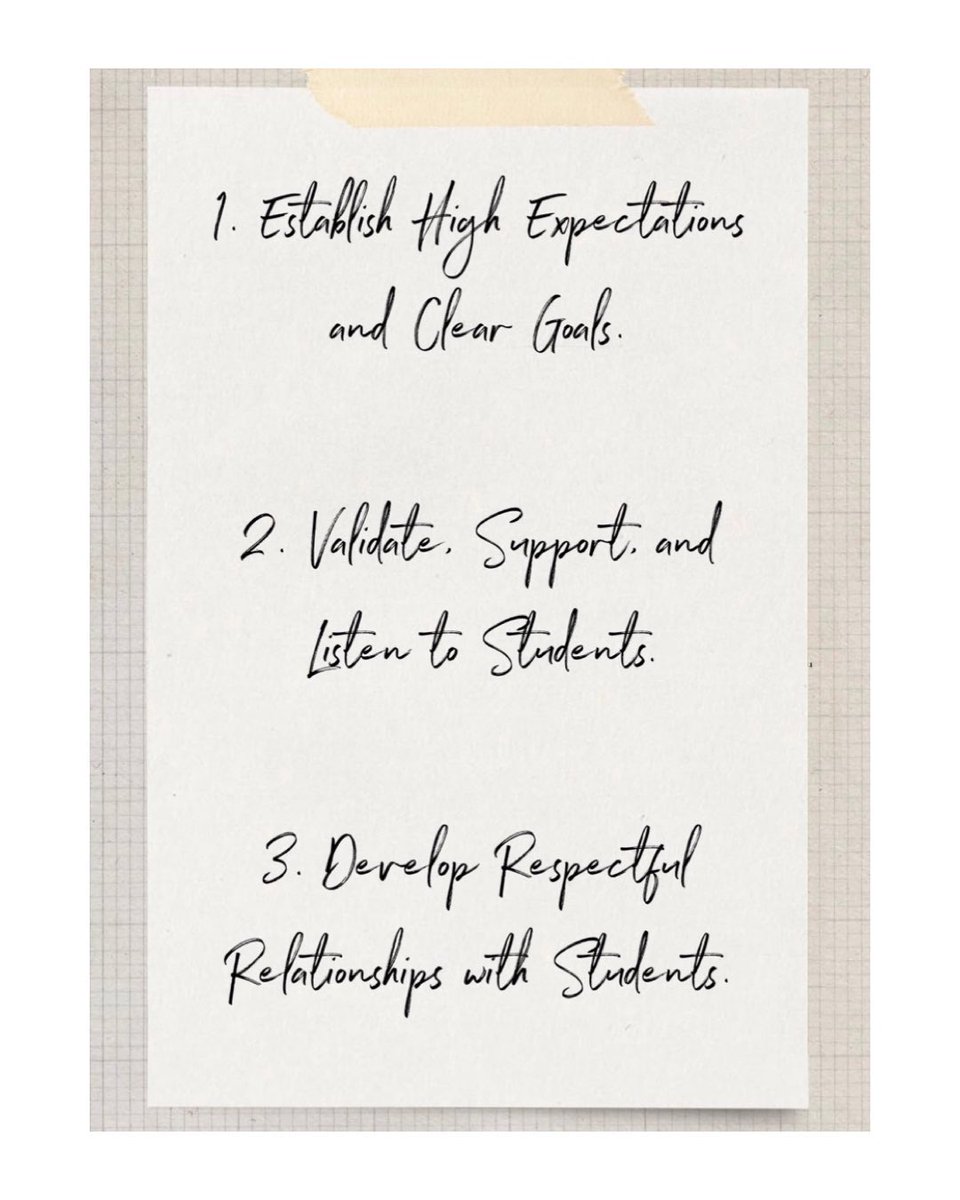 1. Establish High Expectations
and Clear Goals.
2. Validate, Support, and
Listen to Students.
3. Develop Respectful
Relationships with Students.